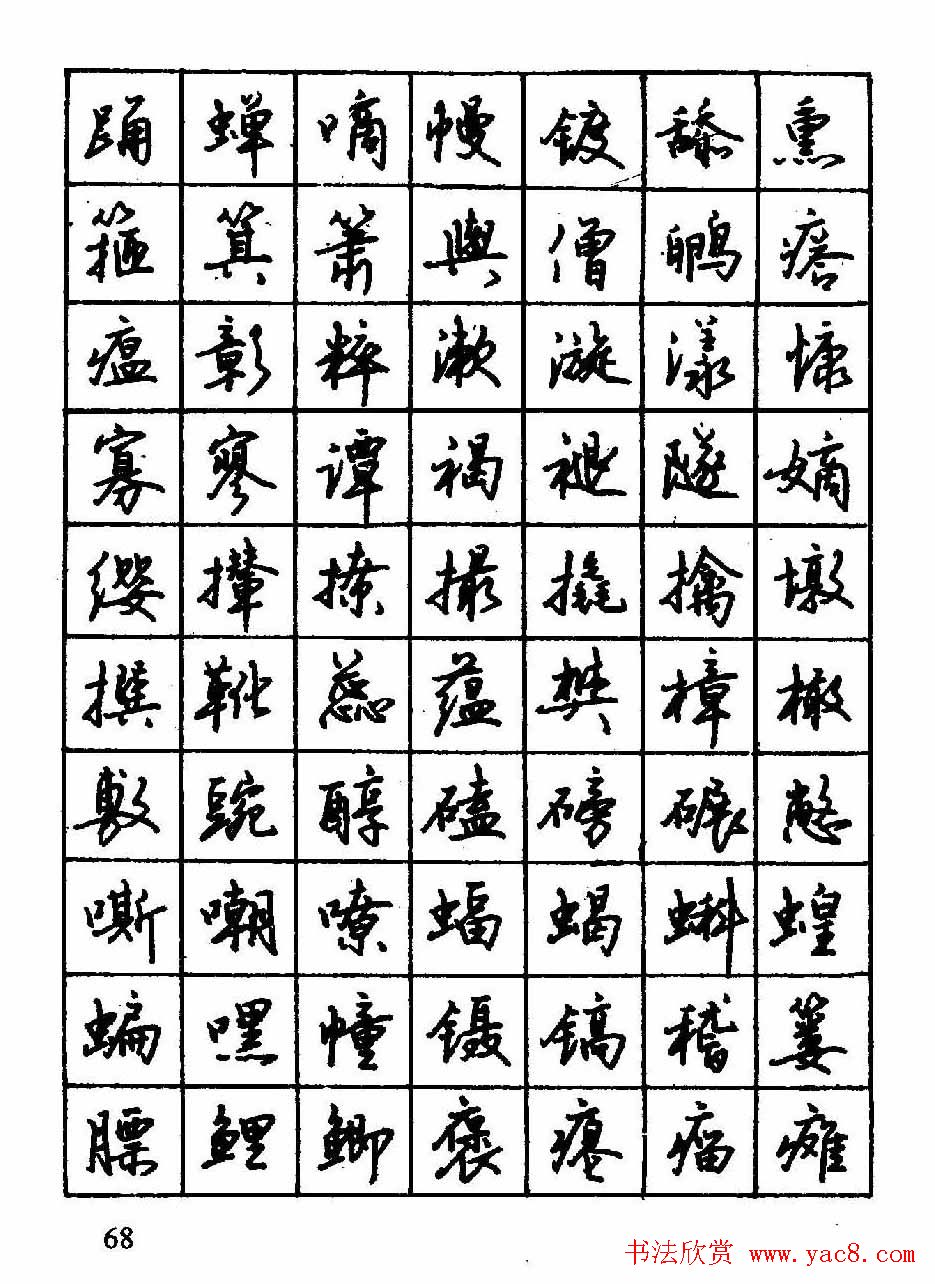 踊蝉嘀幔镀舔熏
箍箕箫舆僧鹏瘩
瘟彰粹漱漩漾慷
寡寥谭褐褪隧嫡
缨撵撩撮撬擒墩
撰靴蕊蕴樊樟橄
敷豌醇磕磅碾憋
嘶嘲嘹蝠蝎蝌蝗
蝙嘿幢镊镐稽篓
膘鲤鲫褒瘪瘤瘫
68
书法欣赏 www.yac8.com